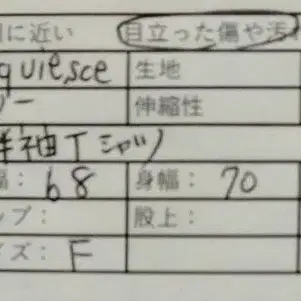 に近い 目立った傷や汚
quiesce 生地
ー 伸縮性
半袖Tシャツ
幅: 68 身幅: 70
ップ: 股上:
イズ: F